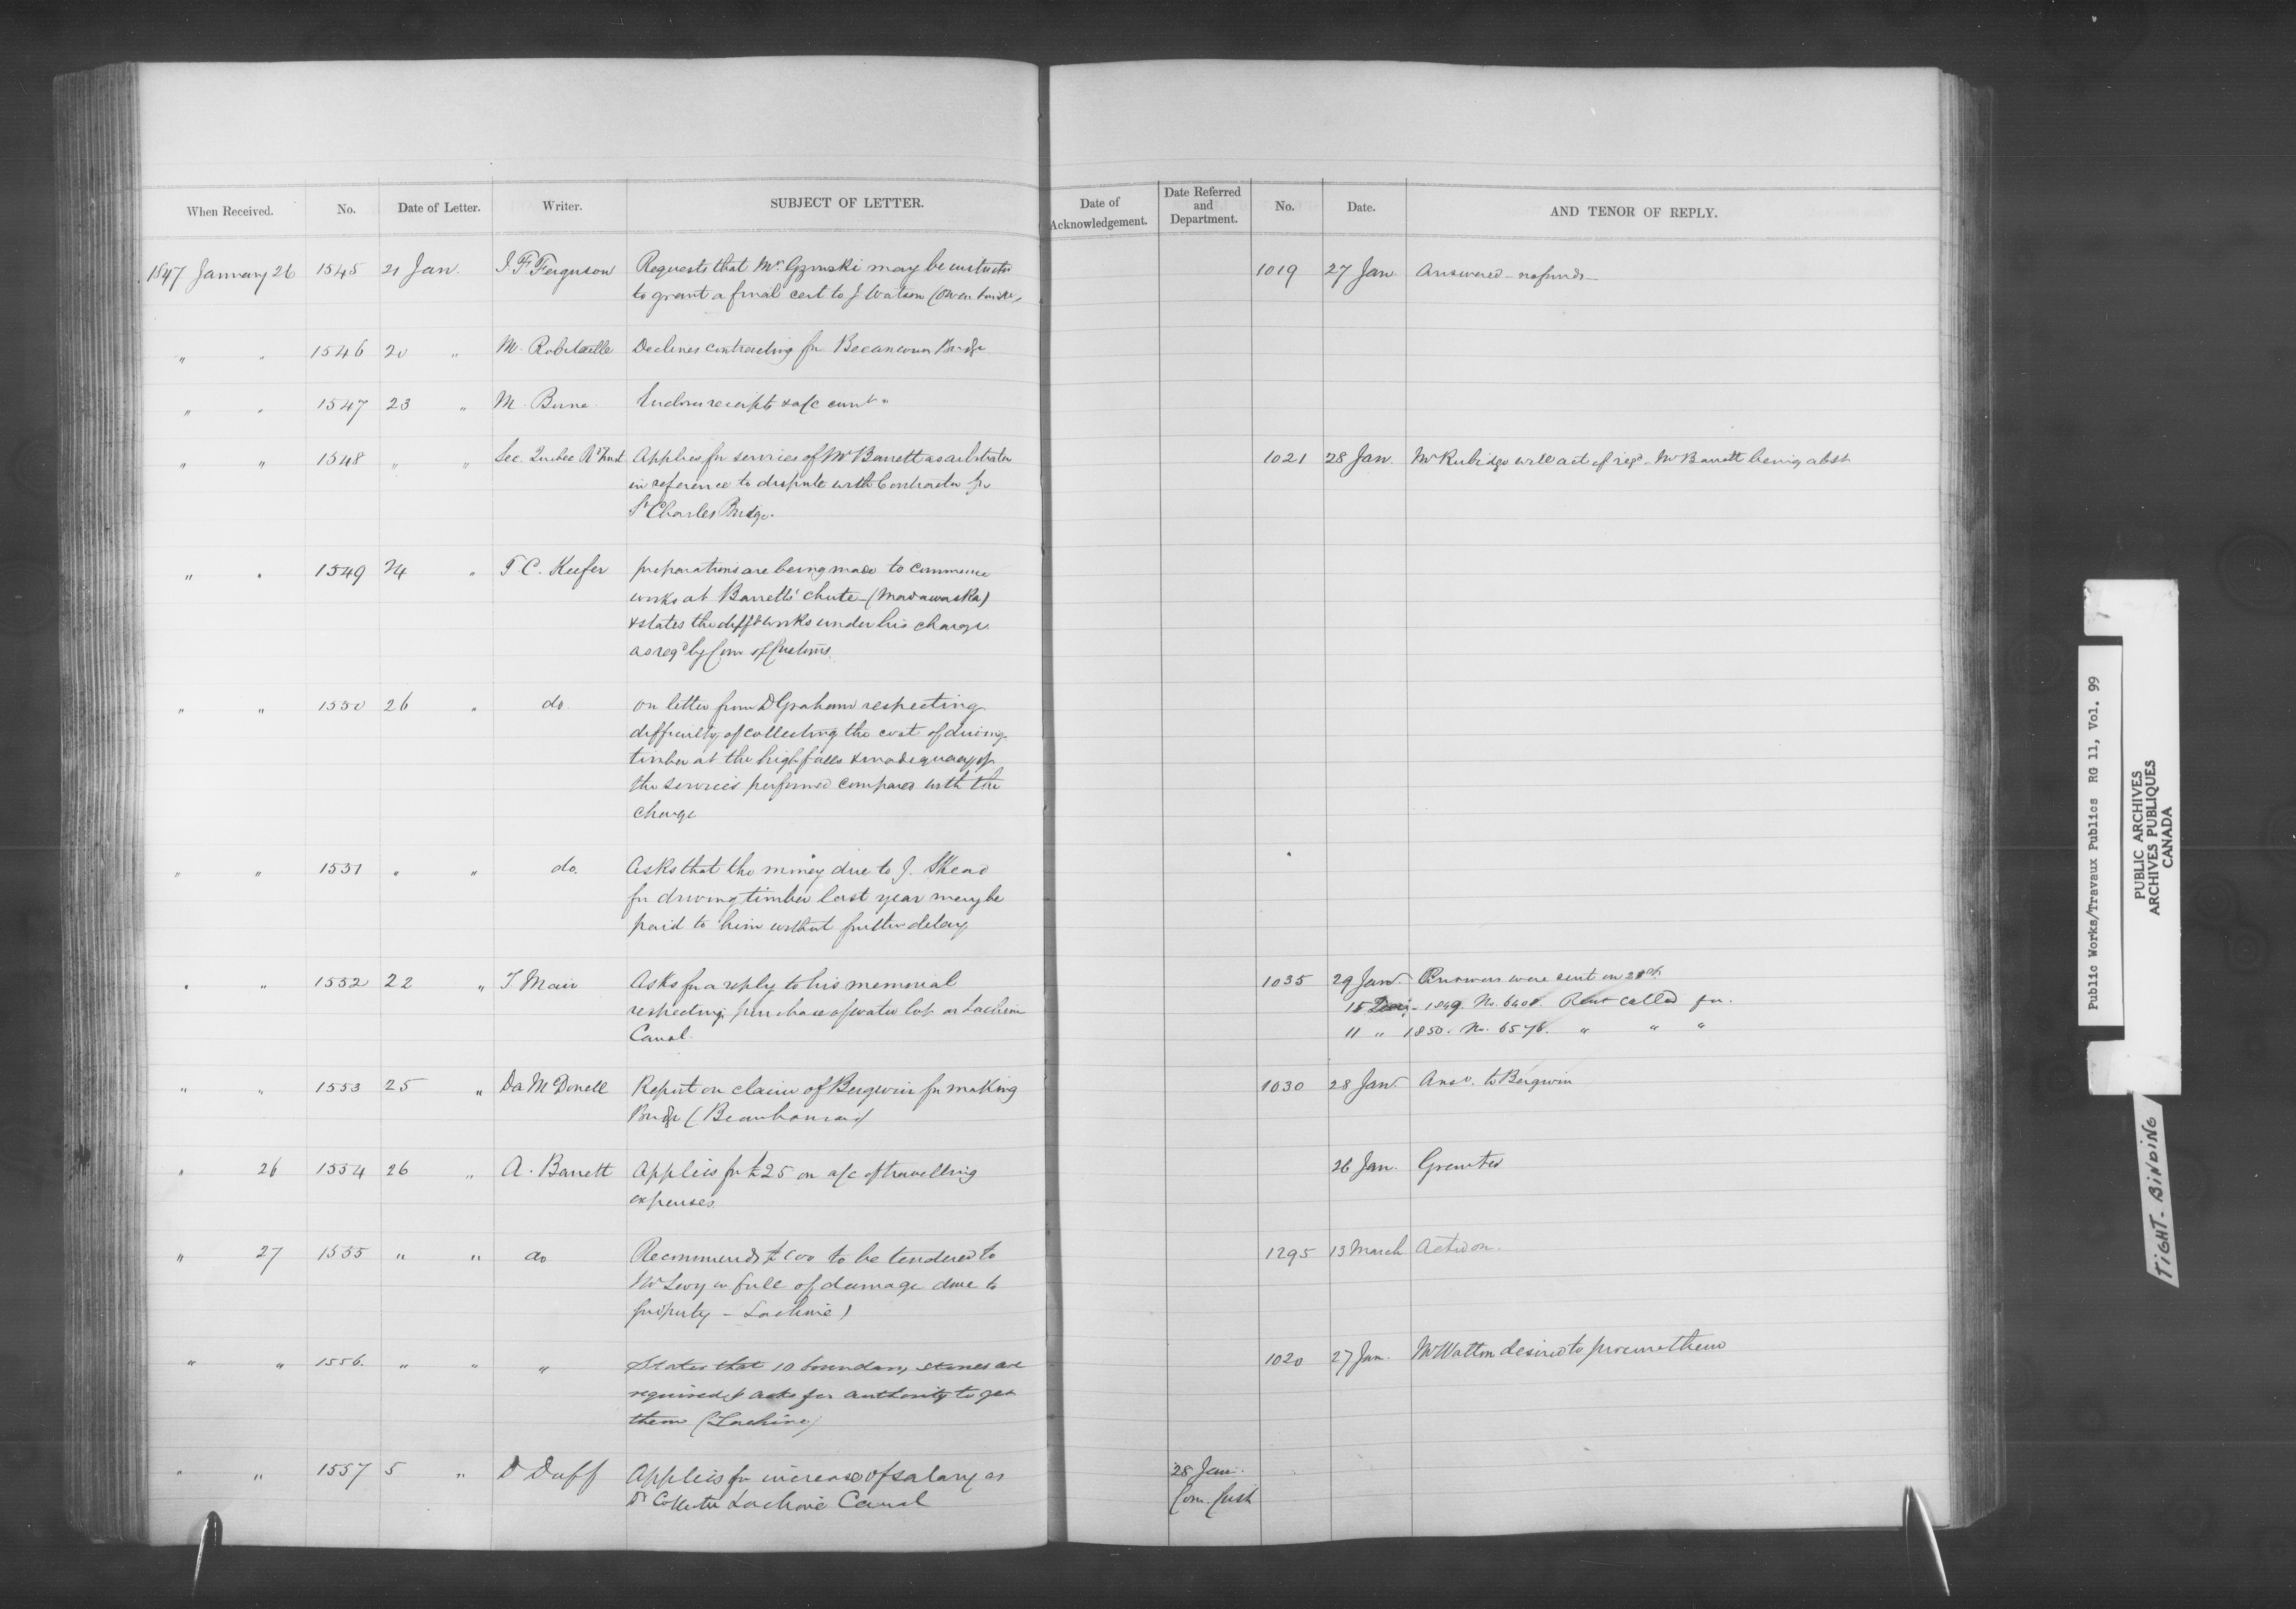 When Received. No. Date of Letter. Writer. SUBJECT OF LETTER. Date of Acknowledgement. Date Referred and Department. No. Date. AND TENOR OF REPLY.
1847 January 26 1545 21 Jan. J. F. Ferguson Requests that Mr Gzowski may be 1019 27 Jan Answered - no funds -
to grant a final cert to J. Watson (Owen
" " 1546 20 " M. Robitaille Declines contracting for Becancour Bridge
" " 1547 23 " M. Encloses receipts & a/c
" " 1548 " " Sec. Quebec Rd Trust Applies for services of Mr Barrett as arbitrator 1021 28 Jan. Mr Rubidge will act if reqd - Mr Barrett being abst
in reference to dispute with Contractor for
St Charles Bridge.
" " 1549 24 " T. C. Keefer preparations are being made to commence
works at Barretts' chute - (Madawaska)
& states the difft works under his charge
as reqd by Com of Customs
" " 1550 26 " do. on letter from D Graham respecting
difficulty of collecting the cost of driving
timber at the high falls & inadequacy of
the services performed compared with the
charge
" " 1551 " " do. Asks that the money due to J. Skead
for driving timber last year may be
paid to him without further delay
" " 1552 22 " T Mair Asks for a reply to his memorial 1035 29 Jan. Answers were sent on
respecting purchase of water lot on Lachine 15 Decr. - 1849. No. 6408. Rent called for.
Canal. 11 " 1850. No. 6576. " " "
" " 1553 25 " Da McDonell Report on claim of Bergevin for making 1030 28 Jan. Ansd. to Bergevin
Bridge (Beauharnois)
" 26 1554 26 " A. Barrett Applies for £25 on a/c of travelling 26 Jan. Granted
expenses.
" 27 1555 " " do Recommends £100 to be tendered to 1295 13 March Acted on.
Mr Levy in full of damage done to
property - Lachine)
" " 1556. " " " States that 10 boundary stones are 1020 27 Jan. Mr Watton desired to procure them
required & asks for authority to get
them (Lachine)
" " 1557 5 " D Duff Applies for increase of salary as 28 Jan.
Dy Collector Lachine Canal Com. Cust
Public Works/Travaux Publics RG 11, Vol. 99
PUBLIC ARCHIVES
ARCHIVES PUBLIQUES
CANADA
TIGHT-BINDING